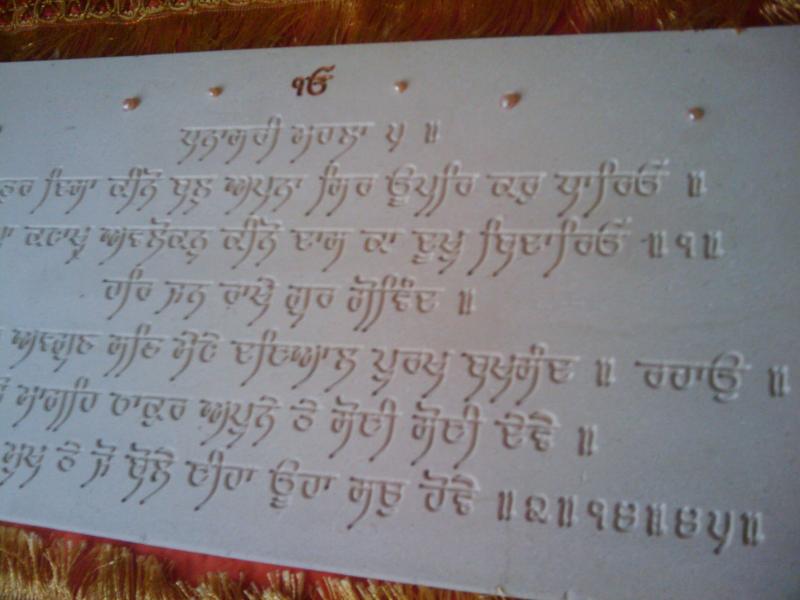 ੴ
ਧਨਾਸਰੀ ਮਹਲਾ ੫ ॥
ਦਿਸਾ ਕੀਨੋ ਬਲੁ ਅਪਨਾ ਸਿਰ ਊਪਰਿ ਕਰੁ ਧਾਰਿਓ ॥
ਅਵਲੋਕਨੁ ਕੀਨੋ ਦਾਸ ਕਾ ਦੂਖੁ ਬਿਦਾਰਿਓ ॥੧॥
ਹਰਿ ਜਨ ਰਾਖੇ ਗੁਰ ਗੋਵਿੰਦ ॥
ਅਵਗੁਣ ਸਭਿ ਮੇਟੇ ਦਇਆਲ ਪੁਰਖ ਬਖਸੰਦ ॥ ਰਹਾਉ ॥
ਮਾਗਹਿ ਠਾਕੁਰ ਅਪੁਨੇ ਤੇ ਸੋਈ ਸੋਈ ਦੇਵੈ ॥
ਮੁਖ ਤੇ ਜੋ ਬੋਲੈ ਈਹਾ ਊਹਾ ਸਚੁ ਹੋਵੈ ॥੨॥੧੪॥੪੫॥